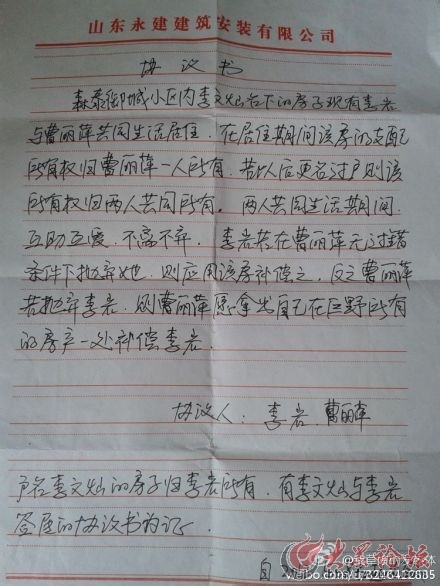 山东永建建筑安装有限公司
协议书
森泰御城小区内李文灿名下的房子现有李岩
与曹丽萍共同生活居住，在居住期间该房的支配
所有权归曹丽萍一人所有，若以后更名过户则该
所有权归两人共同所有。两人共同生活期间，
互助互爱，不离不弃，李岩若在曹丽萍无过错
条件下抛弃她，则应用该房补偿之，反之曹丽萍
若抛弃李岩，则曹丽萍愿拿出自己在巨野所有
的房产一处补偿李岩。
协议人：李岩、曹丽萍
户名李文灿的房子归李岩所有，有李文灿与李岩
签匹的协议书为证
大众论坛